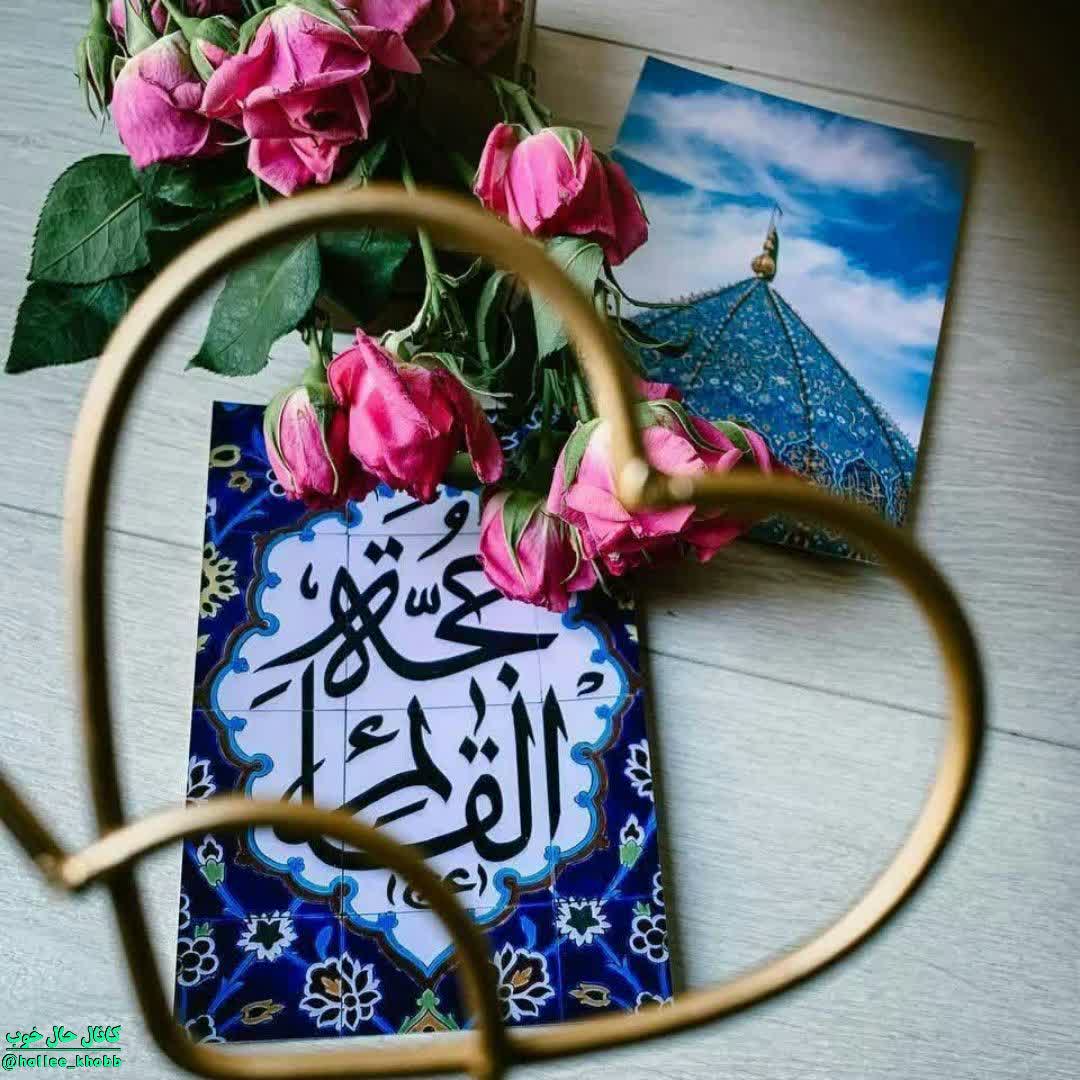 حُجَّة
القائم
(عج)
کانال حال خوب
@hallee_khobb